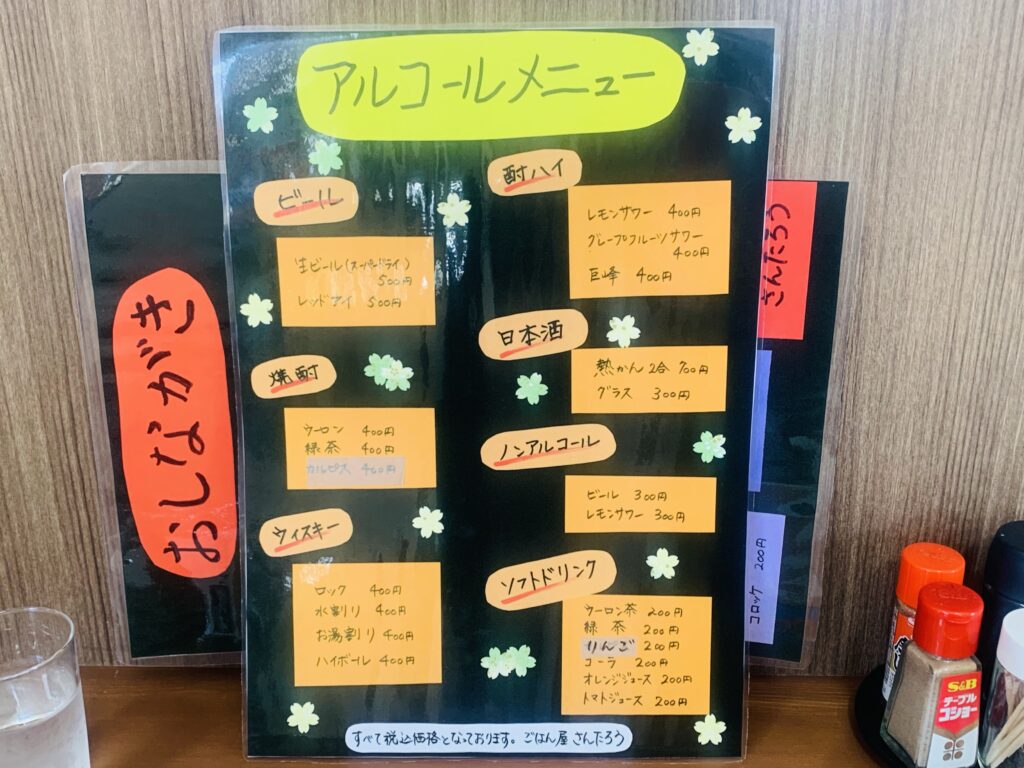 アルコールメニュー
ビール
生ビール(スーパードライ)
500円
レッドアイ 500円
焼酎
ウーロン 400円
緑茶 400円
カルピス 400円
ウィスキー
ロック 400円
水割り 400円
お湯割り 400円
ハイボール 400円
酎ハイ
レモンサワー 400円
グレープフルーツサワー
400円
巨峰 400円
日本酒
熱かん 2合 700円
グラス 300円
ノンアルコール
ビール 300円
レモンサワー 300円
ソフトドリンク
ウーロン茶 200円
緑茶 200円
りんご 200円
コーラ 200円
オレンジジュース 200円
トマトジュース 200円
すべて税込価格となっております。ごはん屋 さんたろう
おしながき
さんたろう
コロッケ 200円
S&B
テーブル
コショー